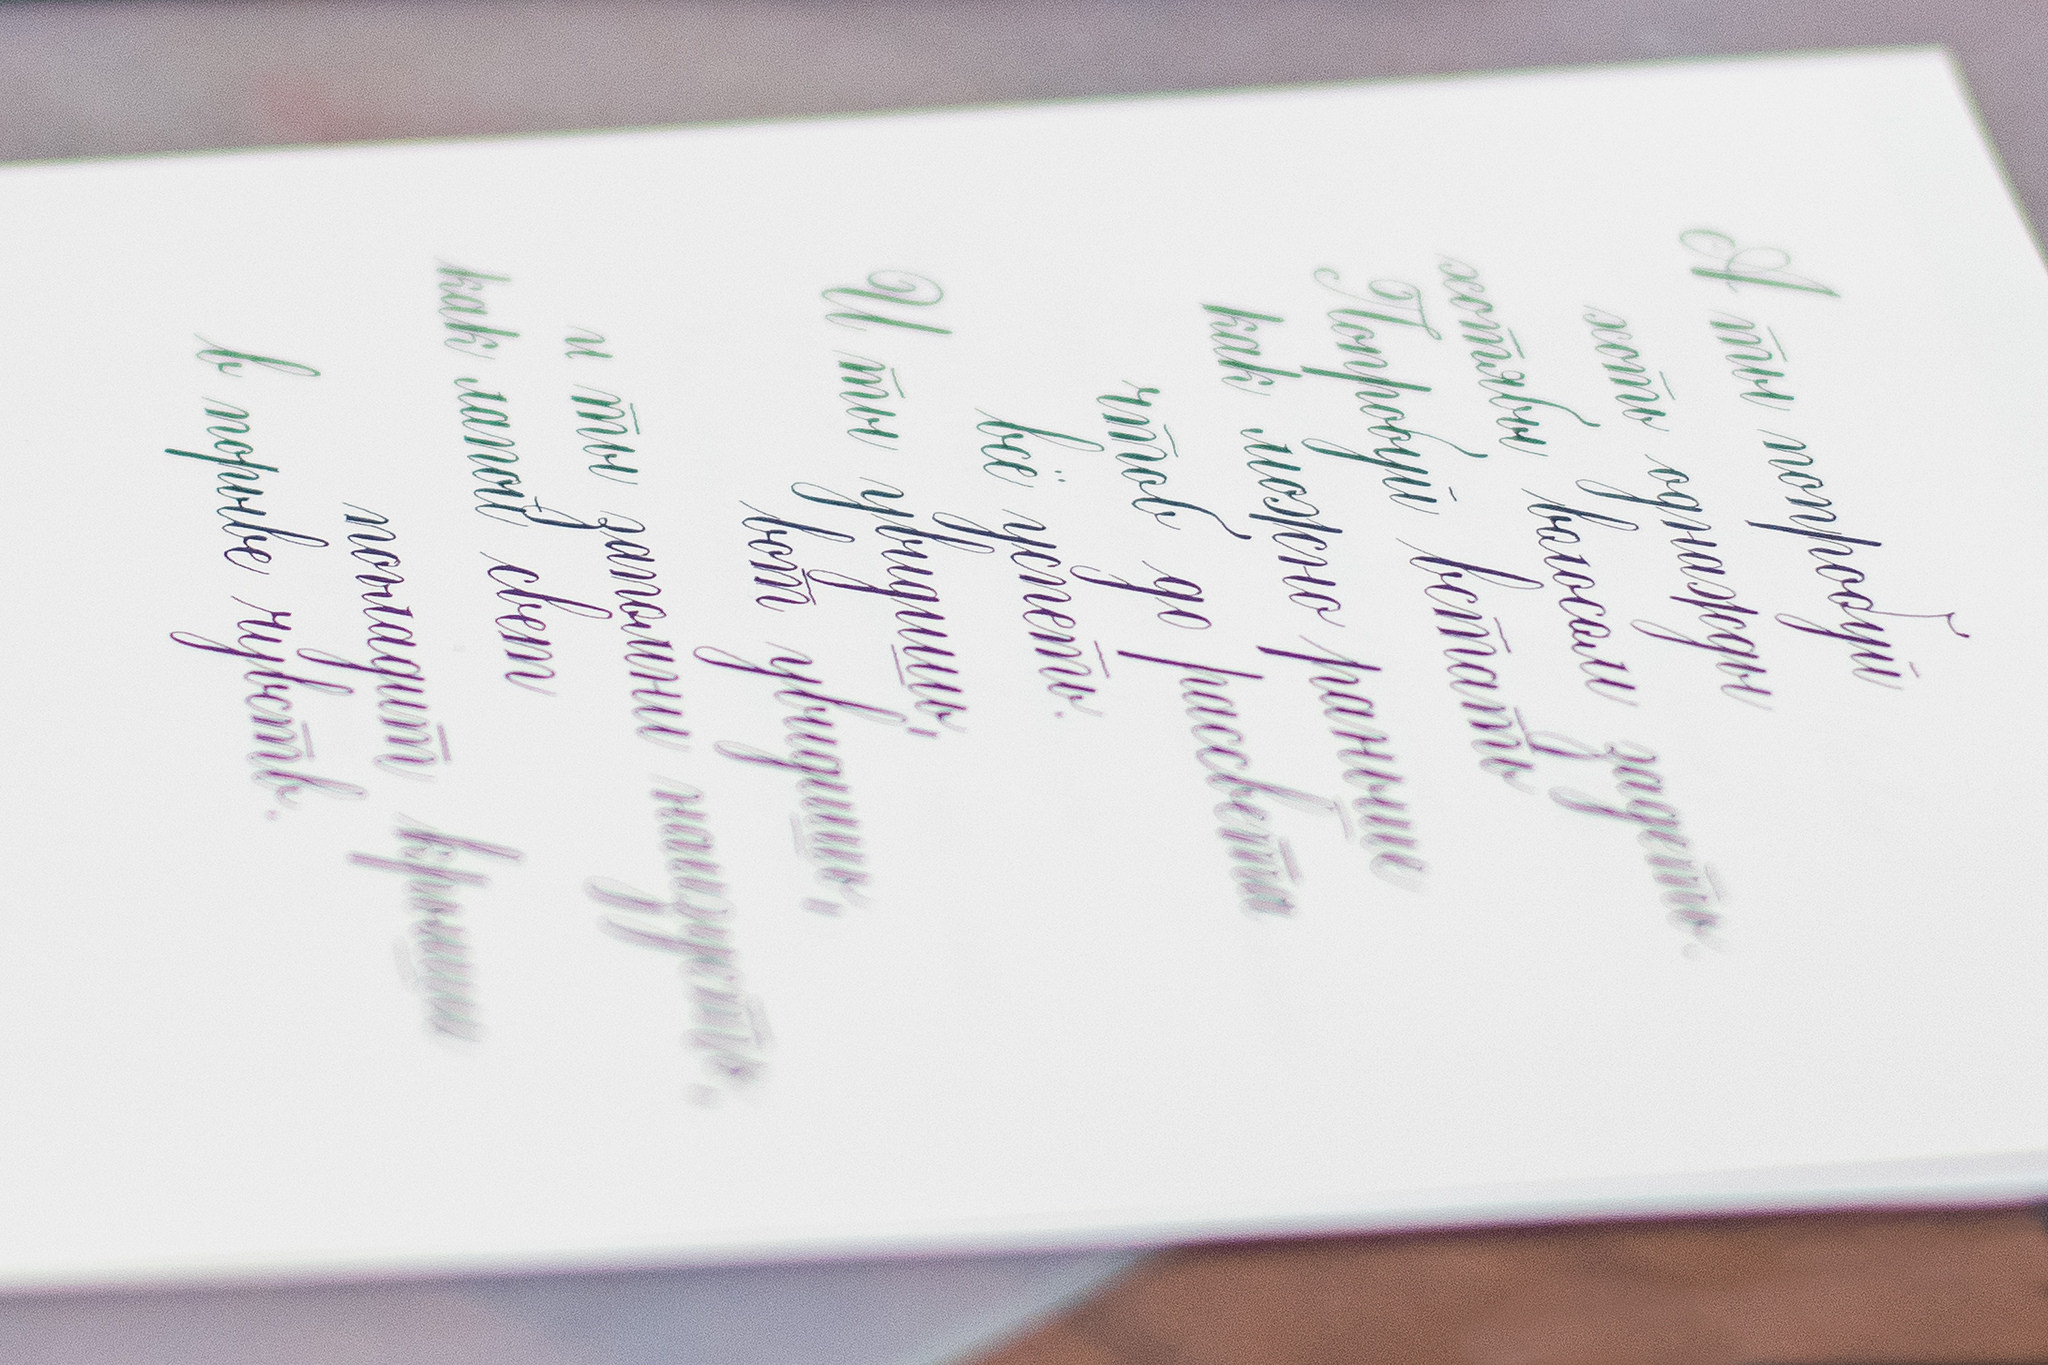 А ты попробуй
хоть однажды
хотябы волосом задеть.
Попробуй встать
как можно раньше
чтоб до рассвета
всё успеть.
И ты увидишь,
вот увидишь,
и ты запомни наизусть,
как лапой свет
погладит крыши
в порыве чувств.